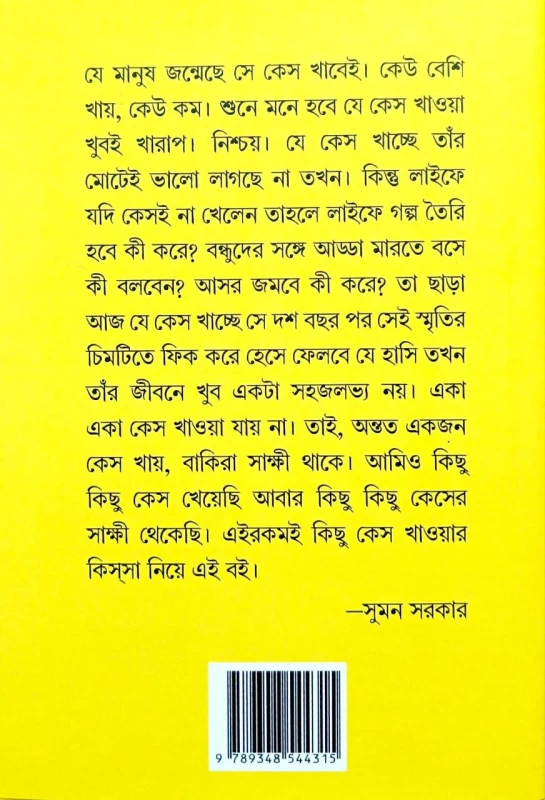 যে মানুষ জন্মেছে সে কেস খাবেই। কেউ বেশি
খায়, কেউ কম। শুনে মনে হবে যে কেস খাওয়া
খুবই খারাপ। নিশ্চয়। যে কেস খাচ্ছে তাঁর
মোটেই ভালো লাগছে না তখন। কিন্তু লাইফে
যদি কেসই না খেলেন তাহলে লাইফে গল্প তৈরি
হবে কী করে? বন্ধুদের সঙ্গে আড্ডা মারতে বসে
কী বলবেন? আসর জমবে কী করে? তা ছাড়া
আজ যে কেস খাচ্ছে সে দশ বছর পর সেই স্মৃতির
চিমটিতে ফিক করে হেসে ফেলবে যে হাসি তখন
তাঁর জীবনে খুব একটা সহজলভ্য নয়। একা
একা কেস খাওয়া যায় না। তাই, অন্তত একজন
কেস খায়, বাকিরা সাক্ষী থাকে। আমিও কিছু
কিছু কেস খেয়েছি আবার কিছু কিছু কেসের
সাক্ষী থেকেছি। এইরকমই কিছু কেস খাওয়ার
কিস্‌সা নিয়ে এই বই।
—সুমন সরকার
9 789348 544315